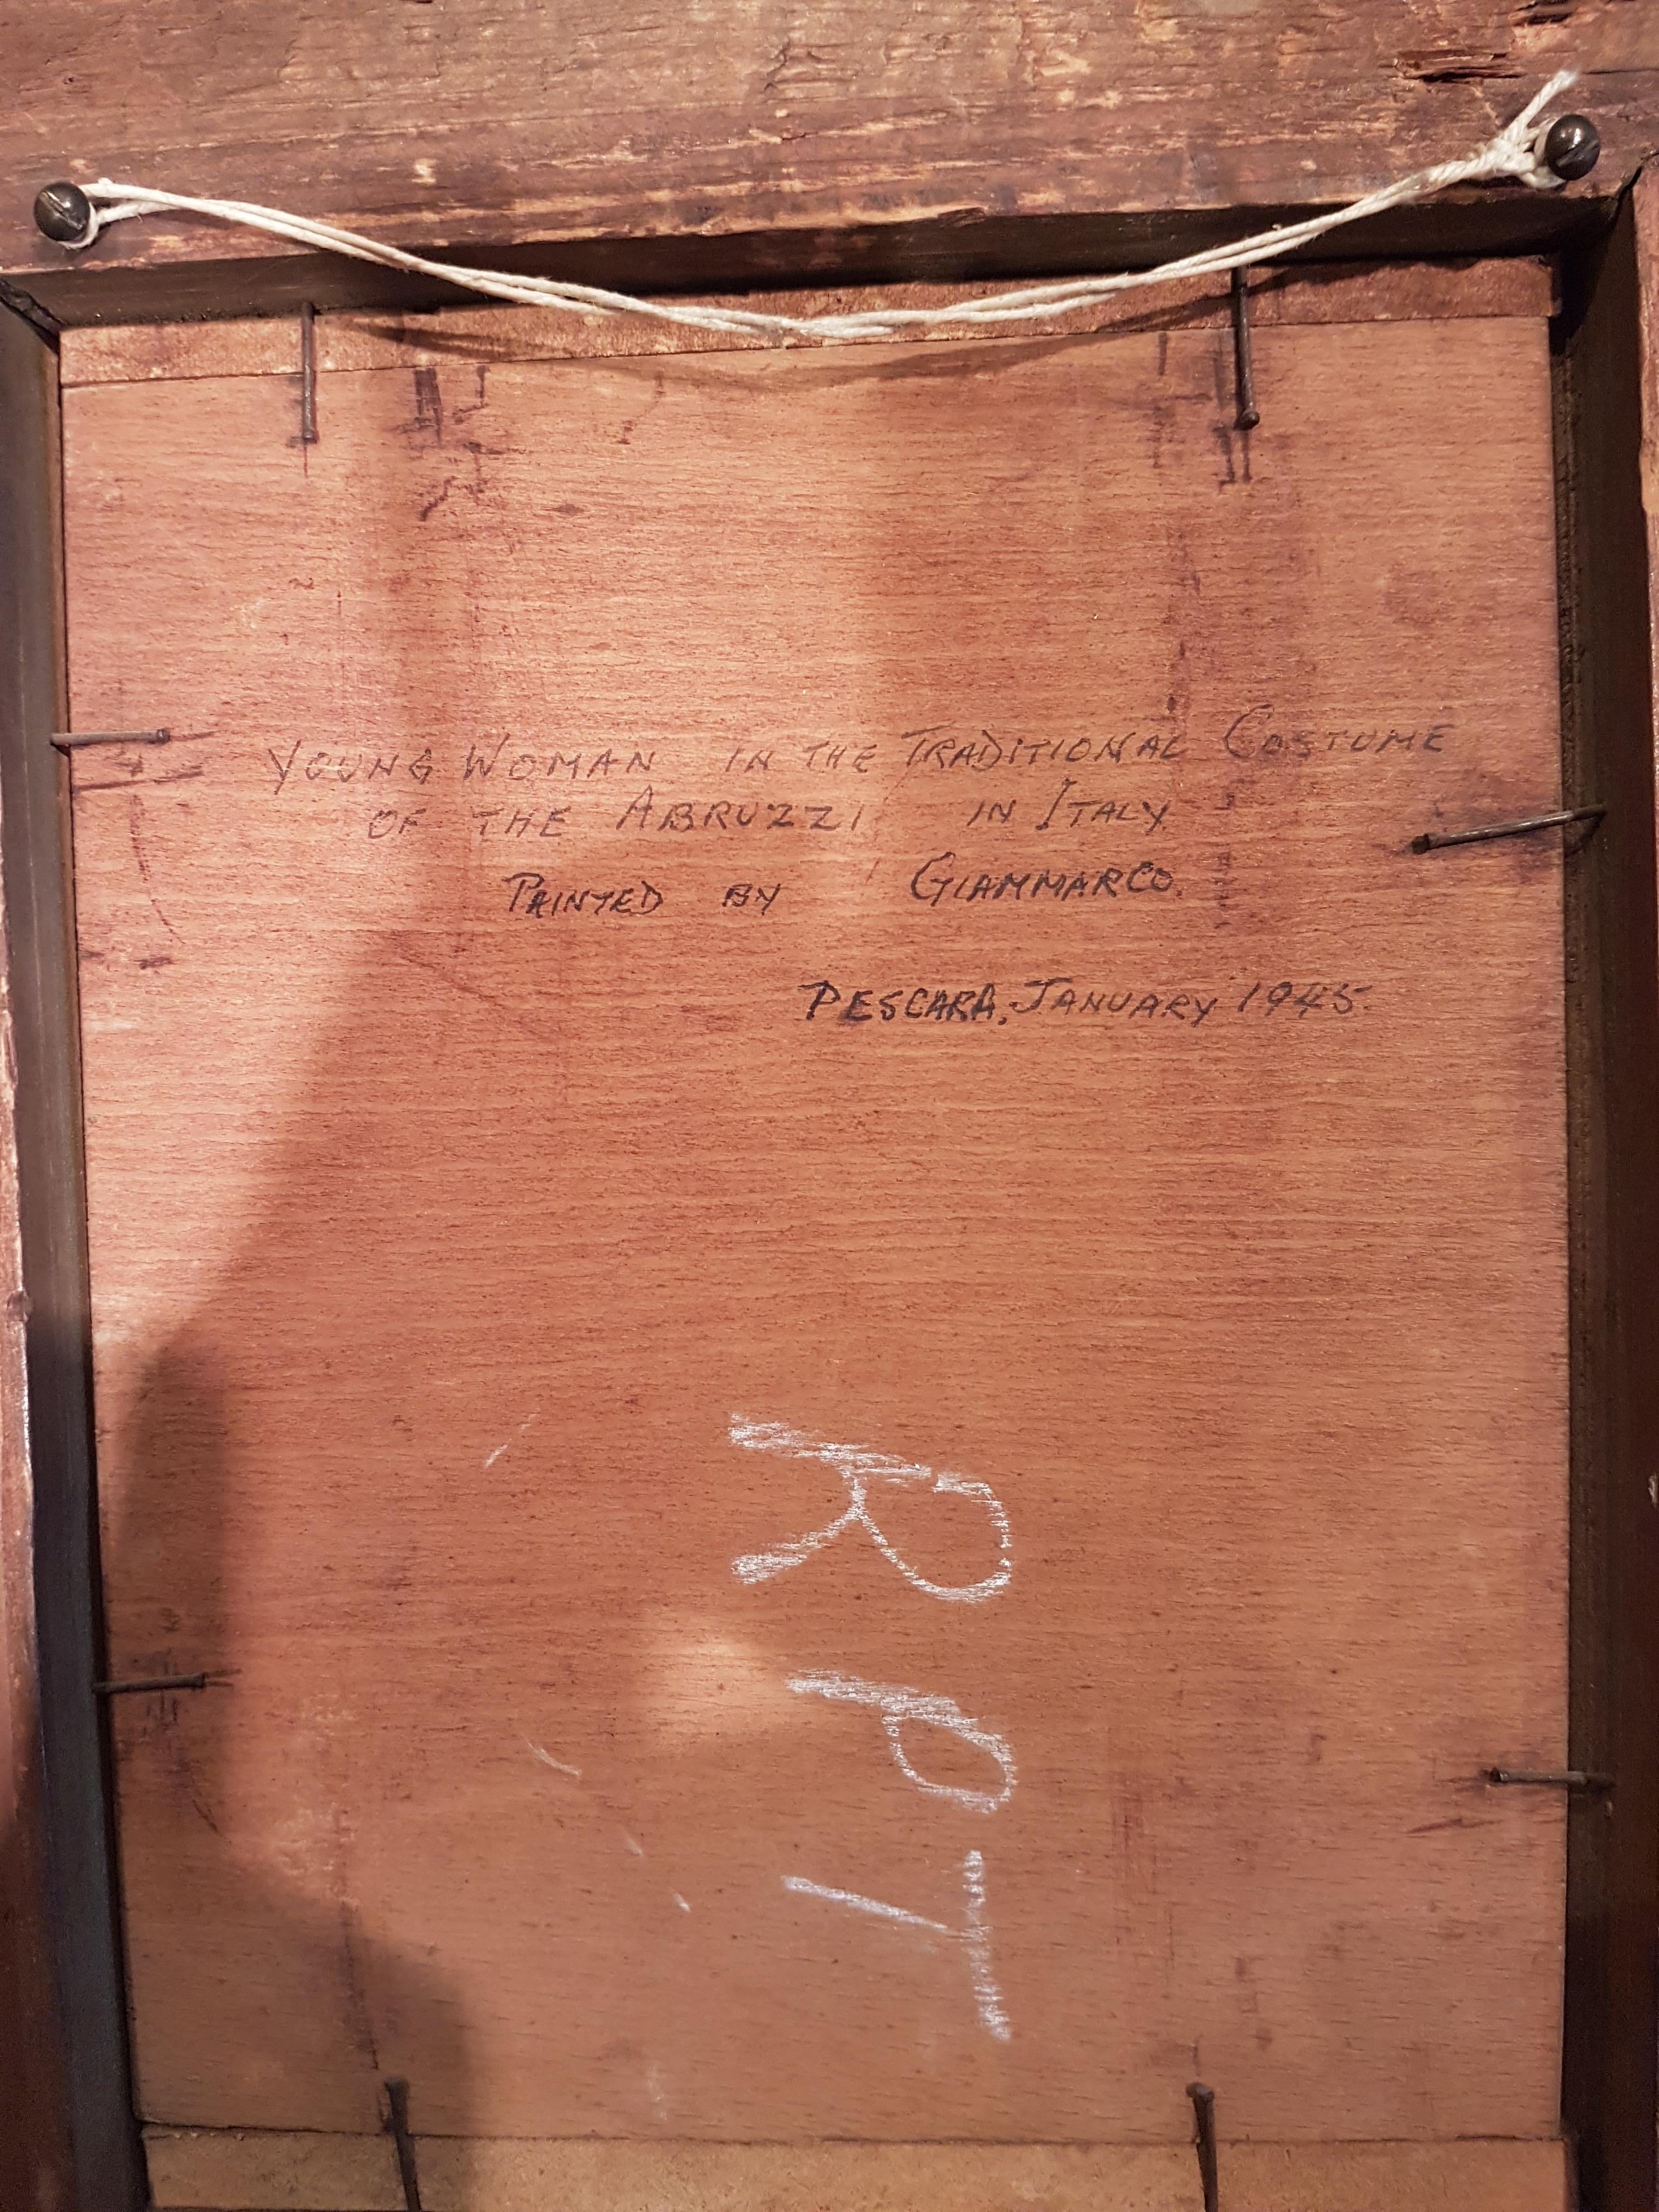 YOUNG WOMAN IN THE TRADITIONAL COSTUME
OF THE ABRUZZI IN ITALY
PAINTED BY GIAMMARCO.
PESCARA, JANUARY 1945.
RPT